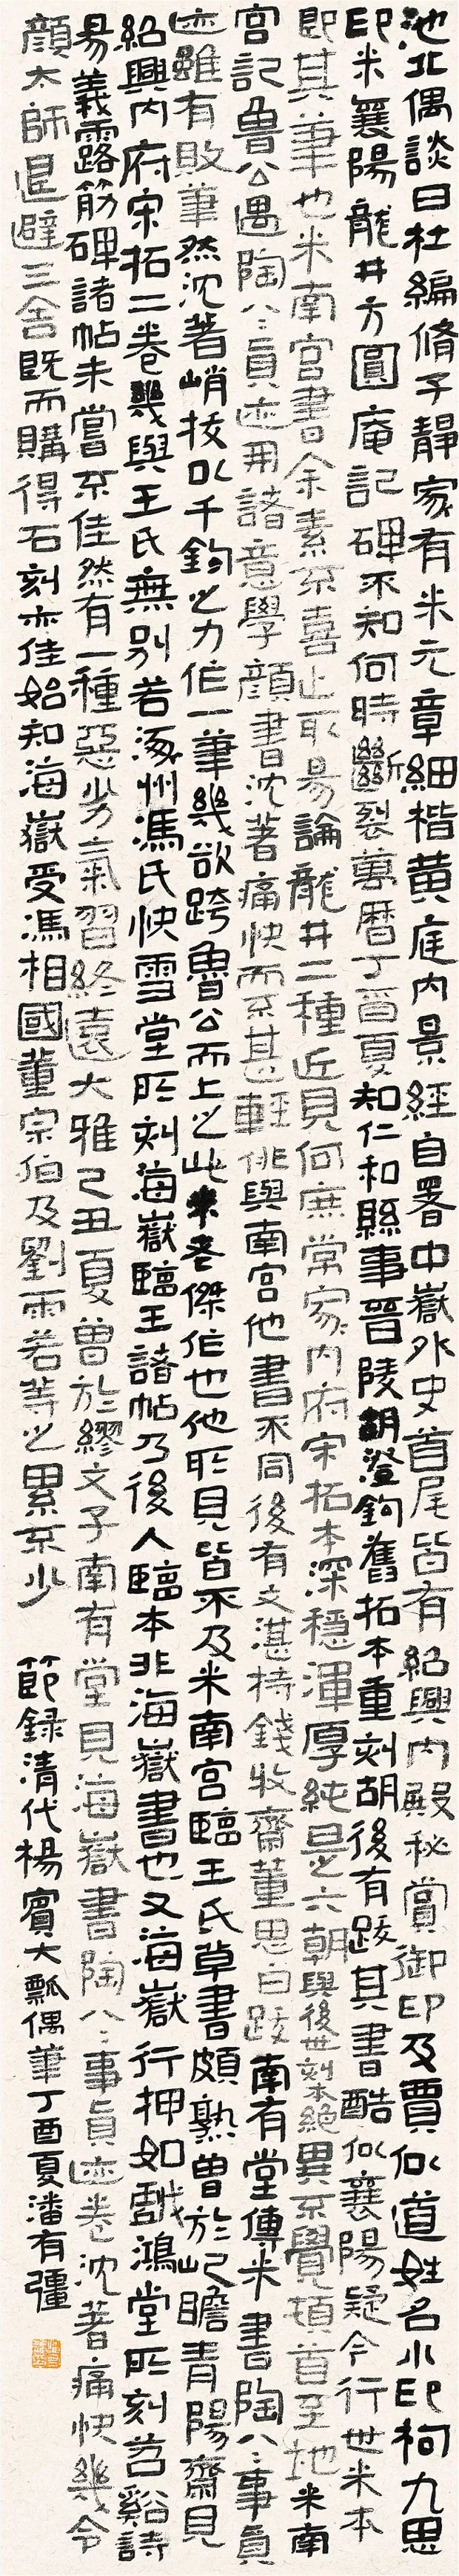 池北偶談曰杜編脩子靜家有米元章細楷黃庭內景經自署中嶽外史首尾皆有紹興內殿秘賞御印及賈似道姓名小印柯九思
印米襄陽龍井方圓庵記碑不知何時斷裂萬曆丁酉夏知仁和縣事晉陵胡澄鉤舊拓本重刻胡後有跋其書酷似襄陽疑今行世米本
即其筆也米南宮書余素不喜止取易論龍井二種近見何庶常家內府宋拓本深穩渾厚純是六朝與後世刻本絕異不覺頓首至地米南
宮記魯公遇陶八八真迹用諸意學顏書沈著痛快而不甚輕佻與南宮他書不同後有文湛持錢牧齋董思白跋南有堂傳米書陶八八事真
迹雖有敗筆然沈著峭拔以千鈞之力作一筆幾欲跨魯公而上之此米老傑作也他所見皆不及米南宮臨王氏草書頗熟曾於屺瞻青陽齋見
紹興內府宋拓二卷幾與王氏無別若涿州馮氏快雪堂所刻海嶽臨王諸帖乃後人臨本非海嶽書也又海嶽行押如戲鴻堂所刻苕谿詩
易義露筋碑諸帖未嘗不佳然有一種惡劣氣習終遠大雅己丑夏曾於繆文子南有堂見海嶽書陶八八事真迹卷沈著痛快幾令
顏太師退避三舍既而購得石刻亦佳始知海嶽受馮相國董宗伯及劉雨若等之累不少 節録清代楊賓大瓢偶筆丁酉夏潘有彊